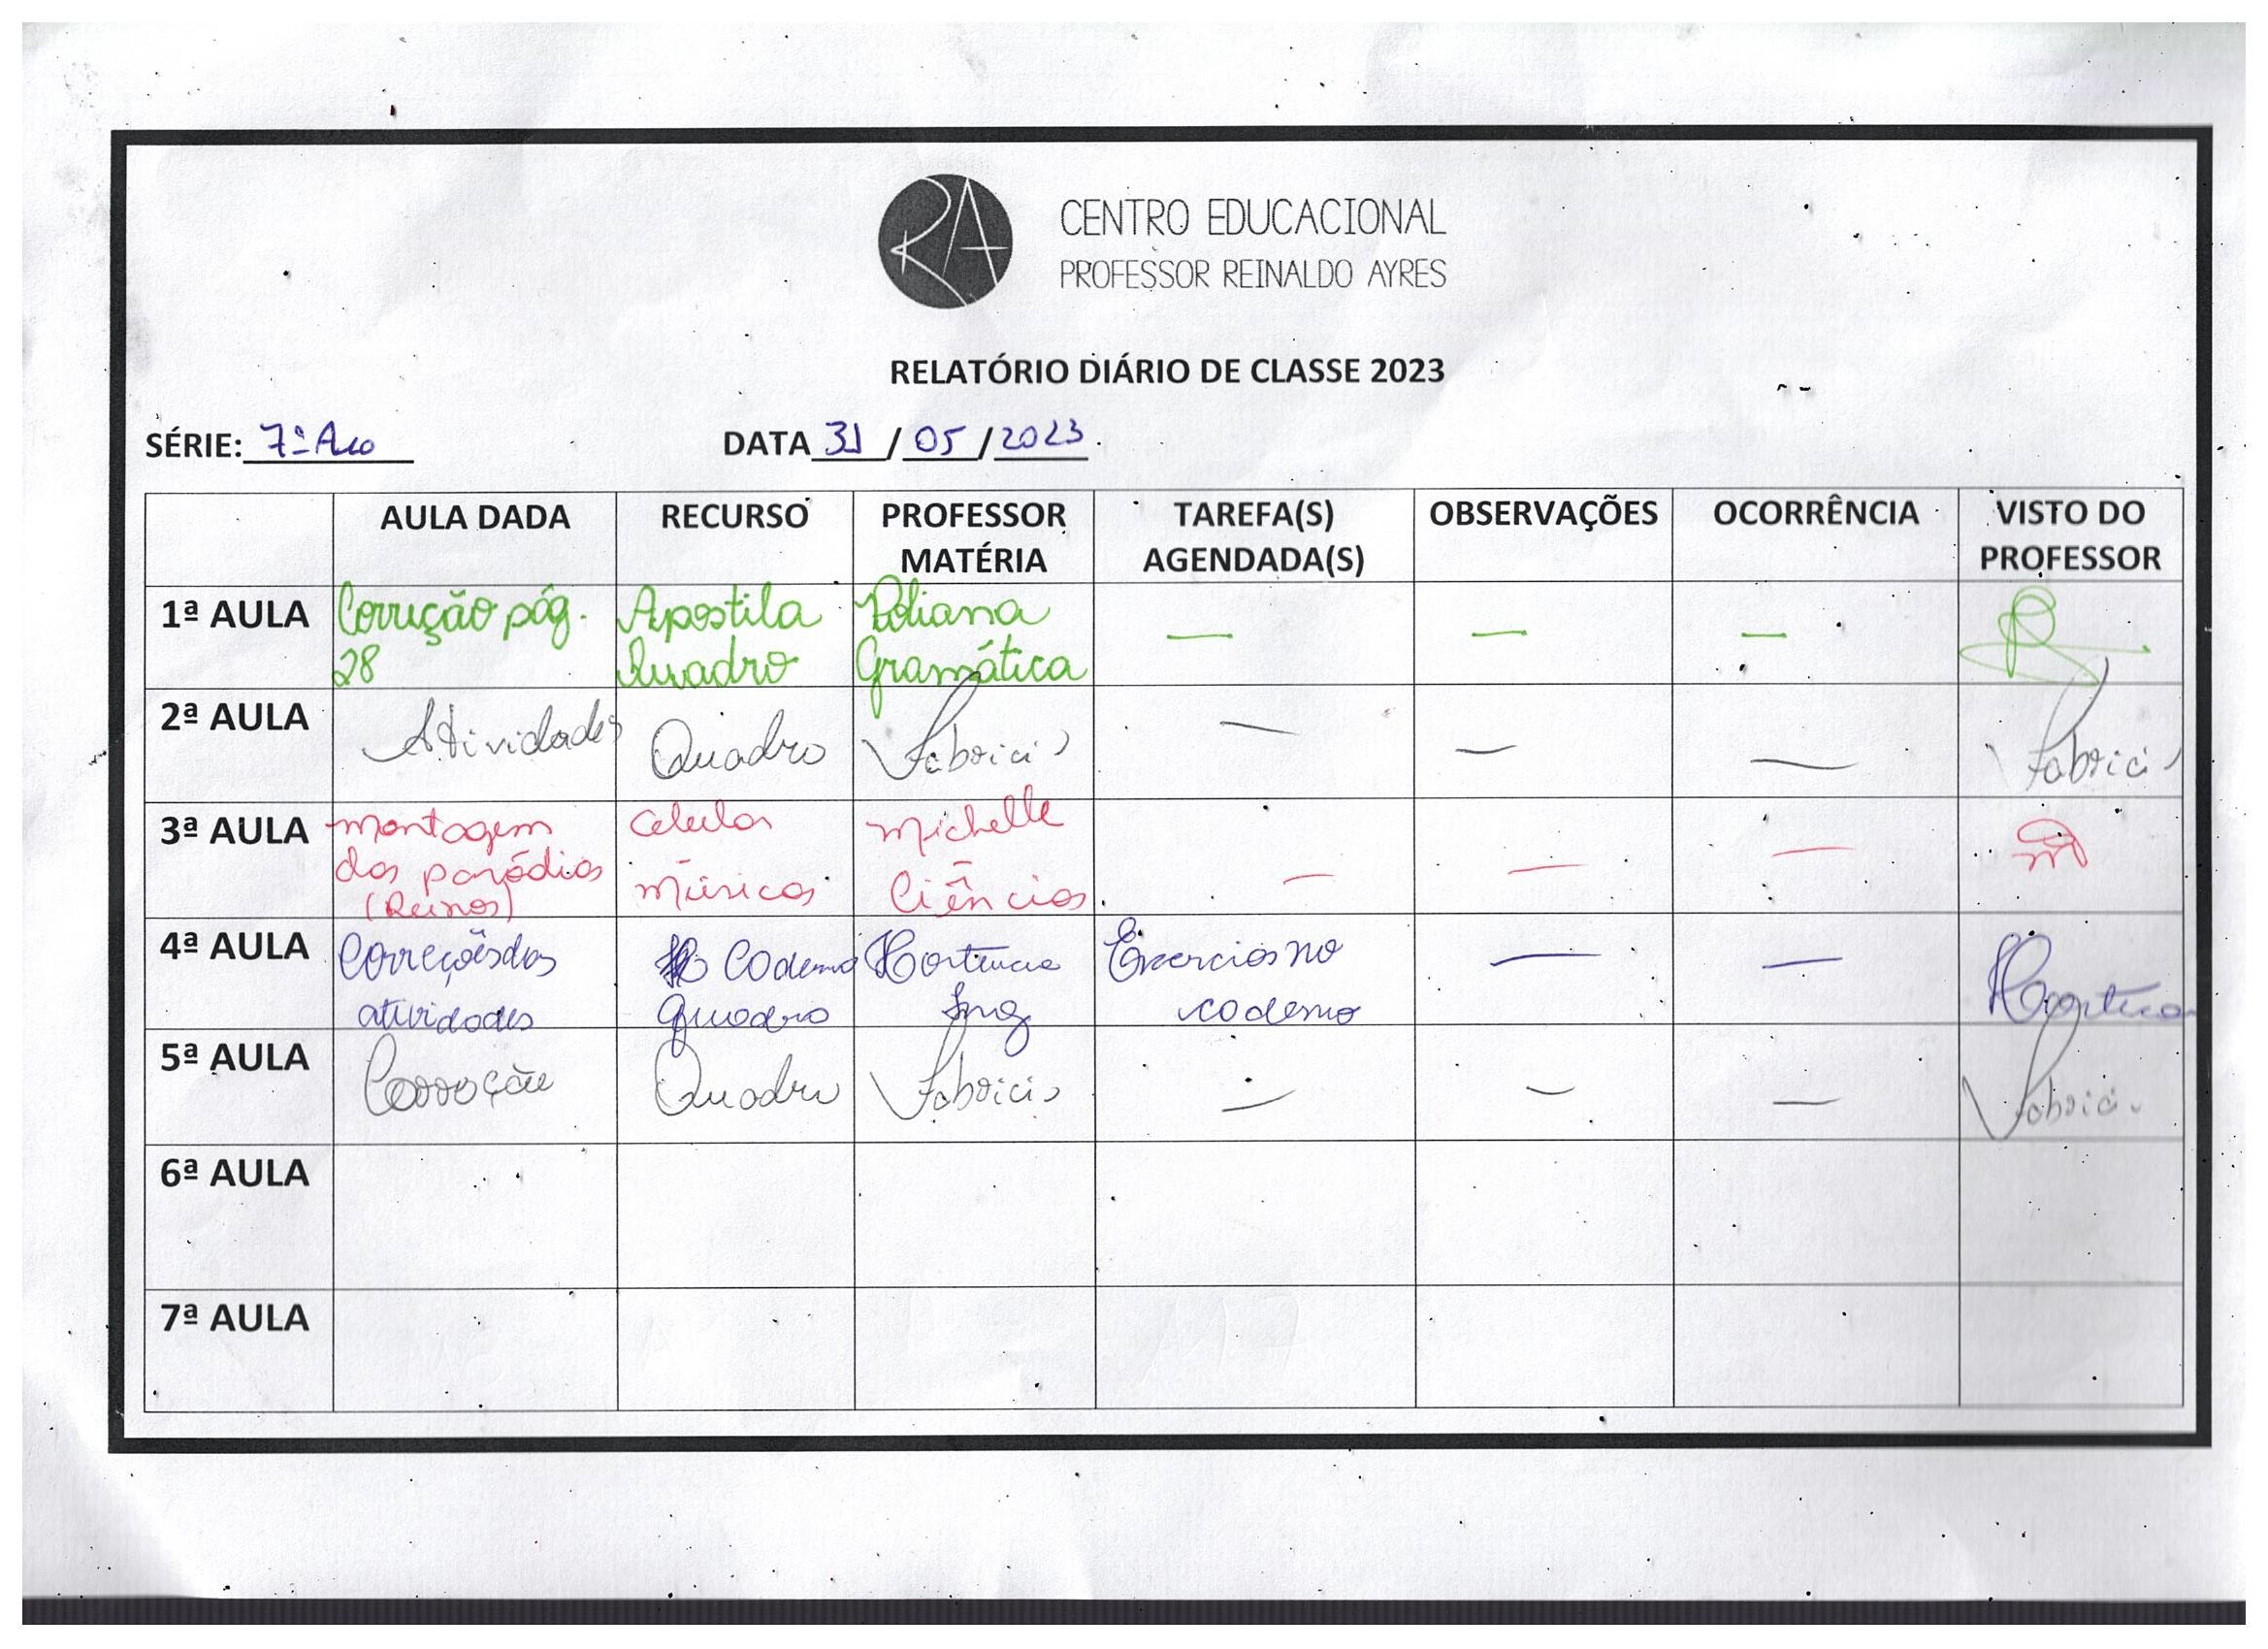 RA
CENTRO EDUCACIONAL
PROFESSOR REINALDO AYRES
RELATÓRIO DIÁRIO DE CLASSE 2023
SÉRIE: 7º Ano DATA 31 / 05 / 2023
AULA DADA RECURSO PROFESSOR MATÉRIA TAREFA(S) AGENDADA(S) OBSERVAÇÕES OCORRÊNCIA VISTO DO PROFESSOR
1ª AULA Correção pág. Apostila Poliana — — —
28 Quadro Gramática
2ª AULA Atividades Quadro Fabricio — — — Fabricio
3ª AULA Montagem Celular Michelle
das paródias Músicas Ciências — — —
(Reinos)
4ª AULA Correções das Caderno Hortencia Exercícios no — — Hortencia
atividades quadro Ing caderno
5ª AULA Correção Quadro Fabricio — — — Fabricio
6ª AULA
7ª AULA